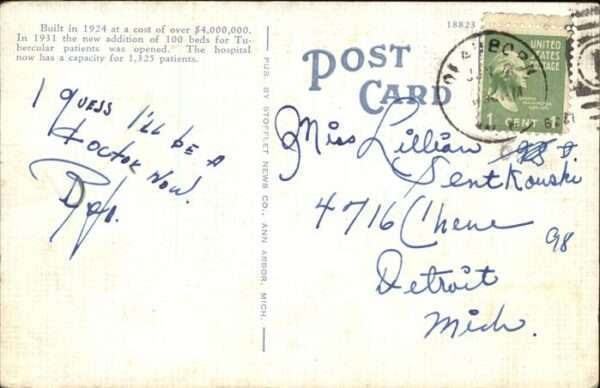 Built in 1924 at a cost of over $4,000,000.
In 1931 the new addition of 100 beds for Tu-
bercular patients was opened. The hospital
now has a capacity for 1,325 patients.
I guess I'll be a
Doctor Now.
PUB. BY STOFFLET NEWS CO., ANN ARBOR, MICH.
18823
POST
CARD
UNITED
STATES
POSTAGE
1 CENT
Miss Lillian
Sentkouski
4716 Chene
98
Detroit
Mich.